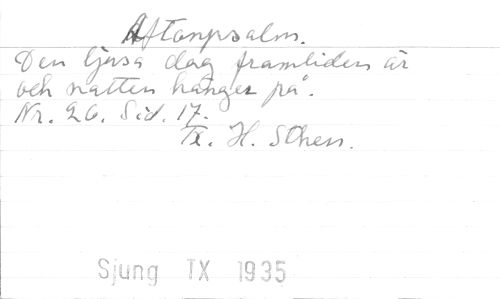 Aftonpsalm.
Den ljusa dag framliden är
och natten hänger på.
Nr. 26. Sid. 17.
Tx. H. Sthen.
Sjung TX 1935